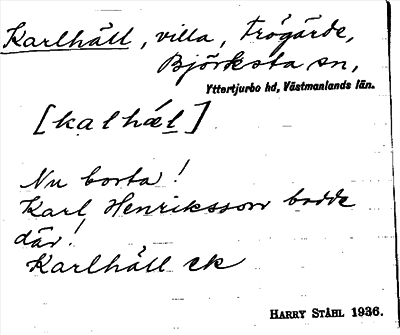 Karlhäll, villa, Trögärde,
Björksta sn,
Yttertjurbo hd, Västmanlands län.
[kalhǽl]
Nu borta!
Karl Henriksson bodde
där!
Karlhäll ek
HARRY STÅHL 1936.